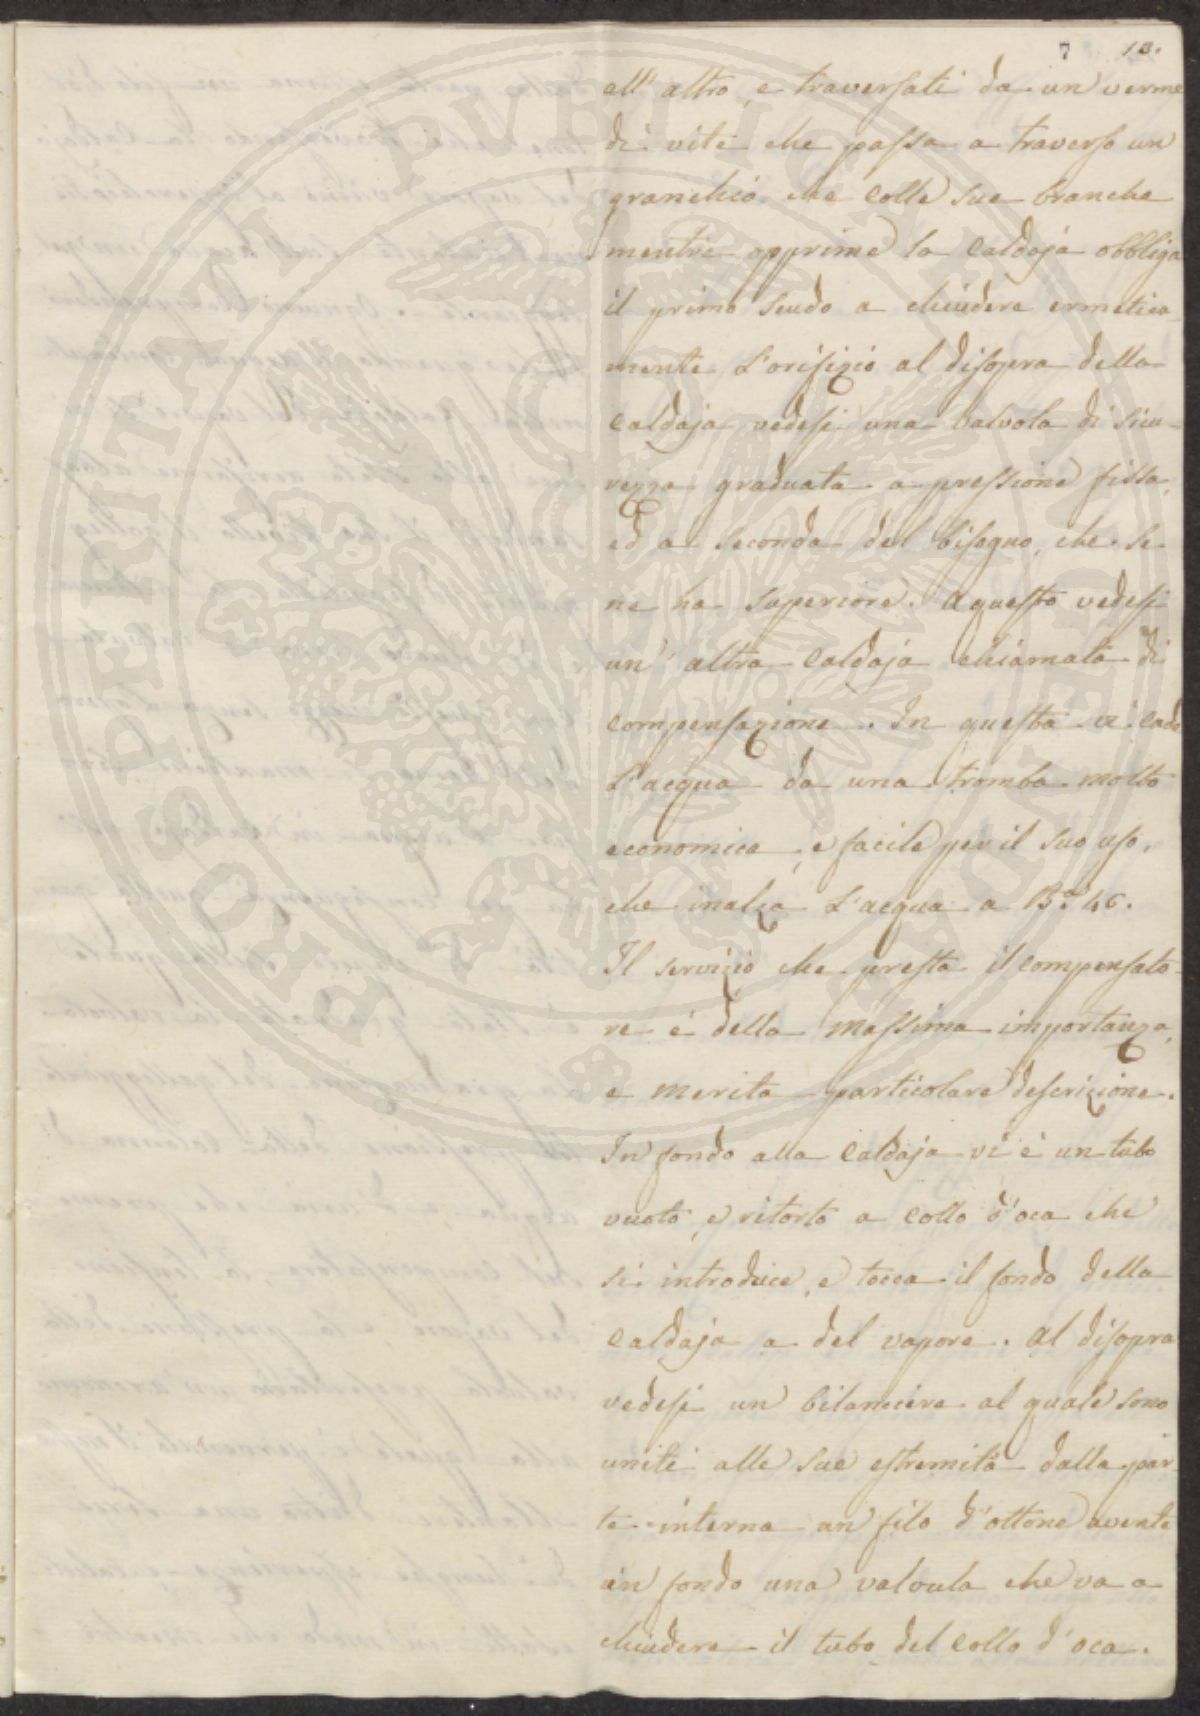 7 13.
all' altro, e traversati da un verme
di vite che passa a traverso un
granchio, che colle sue branche
mentre opprime la Caldaja obbliga
il primo scudo a chiudere ermetica-
mente l'orifizio al disopra della
Caldaja vedesi una valvola di sicu-
rezza graduata a pressione fissa,
ed a seconda del bisogno, che se
ne ha superiore. A questo vedesi
un' altra Caldaja chiamata di
compensazione. In questa vi cade
l'acqua da una tromba molto
economica, e facile per il suo uso,
che inalza l'acqua a B.a 46.
Il servizio che presta il compensato-
re è della massima importanza,
e merita particolare descrizione.
In fondo alla Caldaja vi è un tubo
vuoto, e ritorto a collo d'oca che
si introduce, e tocca il fondo della
Caldaja a del vapore. Al disopra
vedesi un bilanciere al quale sono
uniti alle sue estremità dalla par
te interna un filo d'ottone avente
in fondo una valvula che va a
chiudere il tubo del collo d'oca.
PROSPERITATI PUBLICAE AUGENDAE